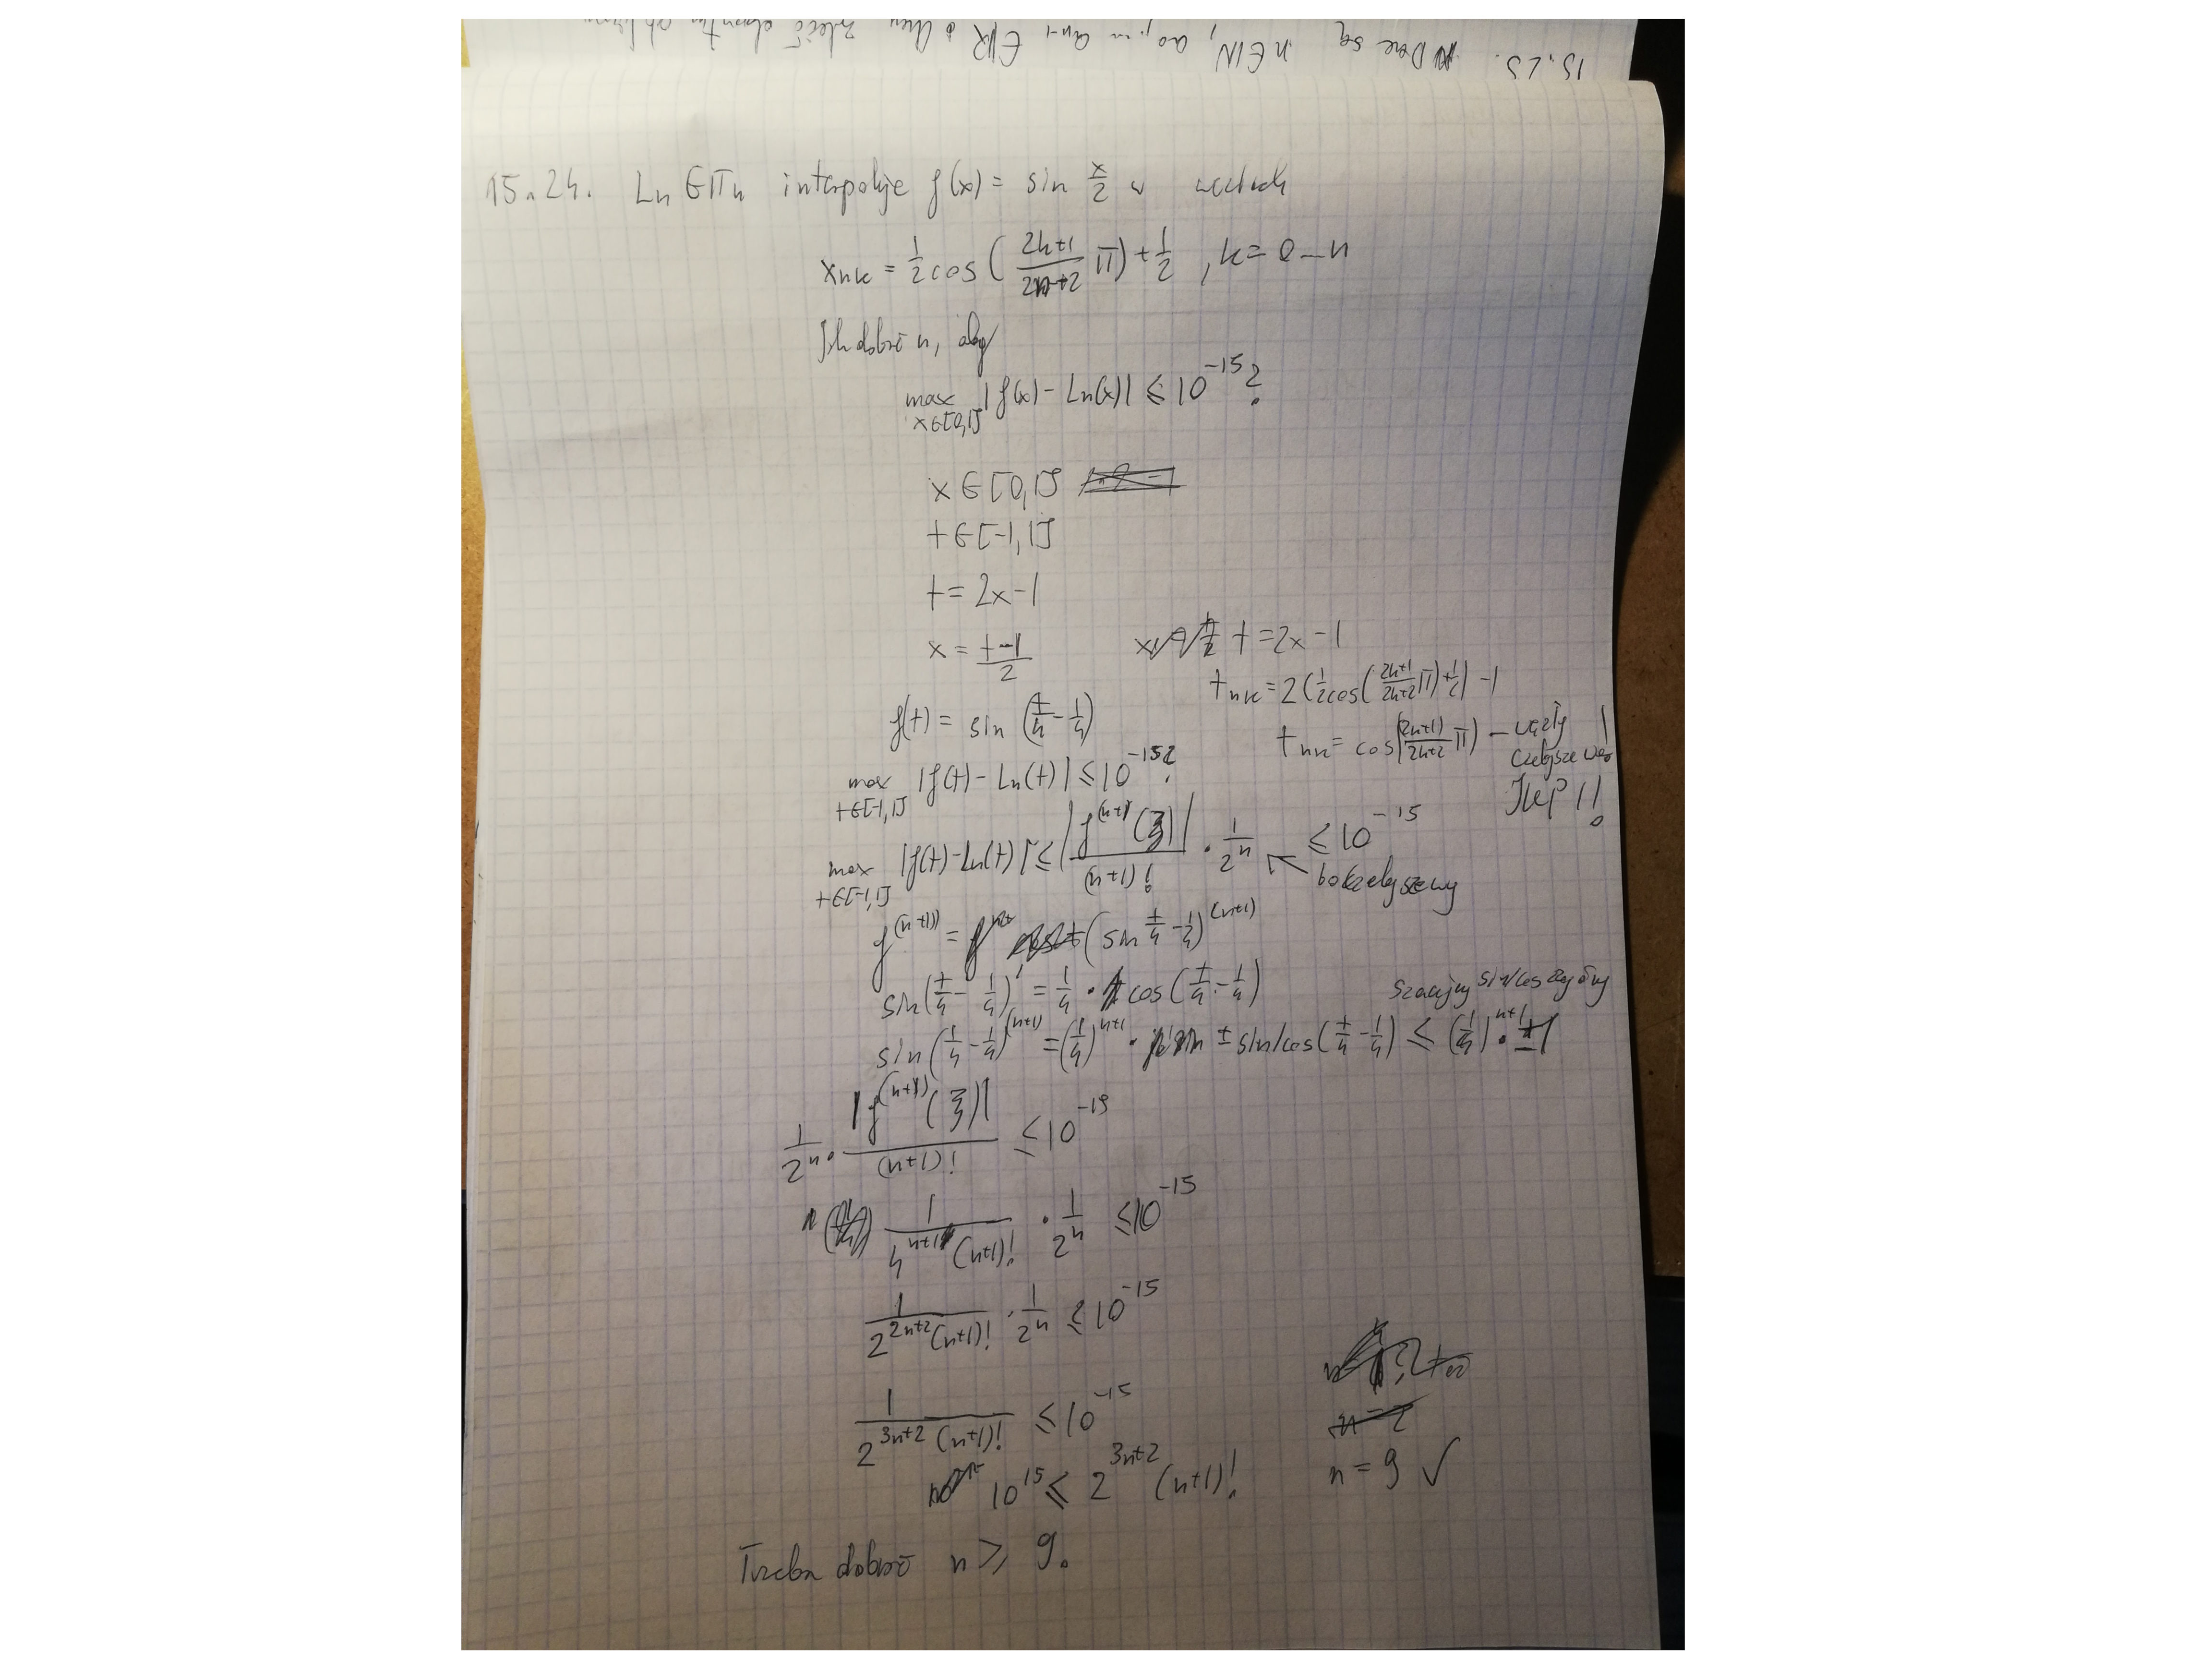 15.25. Dane są n ∈ ℕ, a₀, ... aₙ₋₁ ∈ ℝ
15.24. Lₙ ∈ Πₙ interpoluje f(x) = sin x/2 w węzłach
xₙₖ = 1/2 cos ( (2k+1)/(2n+2) Π ) + 1/2 , k = 0 – n
Jak dobrać n, aby
max x∈[0,1] |f(x) - Ln(x)| ≤ 10⁻¹⁵?
x ∈ [0,1]
t ∈ [-1,1]
t = 2x-1
x = (t-1)/2 t = 2x-1
tₙₖ = 2(1/2 cos((2k+1)/(2n+2) Π) + 1/2) - 1
f(t) = sin (t/4 - 1/4)
tₙₖ = cos((2k+1)/(2n+2) Π) – węzły
max t∈[-1,1] |f(t) - Ln(t)| ≤ 10⁻¹⁵?
max t∈[-1,1] |f(t) - Ln(t)| ≤ |f⁽ⁿ⁺¹⁾(ξ)|/(n+1)! · 1/2ⁿ ≤ 10⁻¹⁵
bo czebyszewy
f⁽ⁿ⁺¹⁾ = (sin t/4 - 1/4)⁽ⁿ⁺¹⁾
sin(t/4 - 1/4)' = 1/4 · cos(t/4 - 1/4)
sin(t/4 - 1/4)⁽ⁿ⁺¹⁾ = (1/4)ⁿ⁺¹ · ± sin/cos(t/4 - 1/4) ≤ (1/4)ⁿ⁺¹ · ±1
1/2ⁿ · |f⁽ⁿ⁺¹⁾(ξ)|/(n+1)! ≤ 10⁻¹⁵
1/(4ⁿ⁺¹ (n+1)!) · 1/2ⁿ ≤ 10⁻¹⁵
1/(2²ⁿ⁺² (n+1)!) · 1/2ⁿ ≤ 10⁻¹⁵
1/(2³ⁿ⁺² (n+1)!) ≤ 10⁻¹⁵
n = 9 ✓
10¹⁵ ≤ 2³ⁿ⁺² (n+1)!
Trzeba dobrać n ≥ 9.